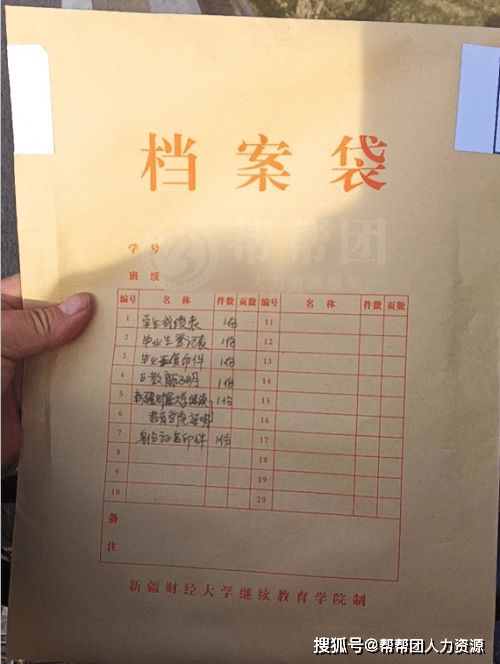 档案袋
帮帮团
人力资源服务
学号
班级
编号 名称 件数 页数 11 名称 件数 页数
1 学生成绩表 1份 11
2 毕业生登记表 1份 12
3 毕业证复印件 1份 13
4 1份 14
5 新疆财经大学继续 1份 15
6 教育学院证明 16
7 身份证复印件 1份 17
8 18
9 19
10 20
备注
新疆财经大学继续教育学院制
搜狐号@帮帮团人力资源